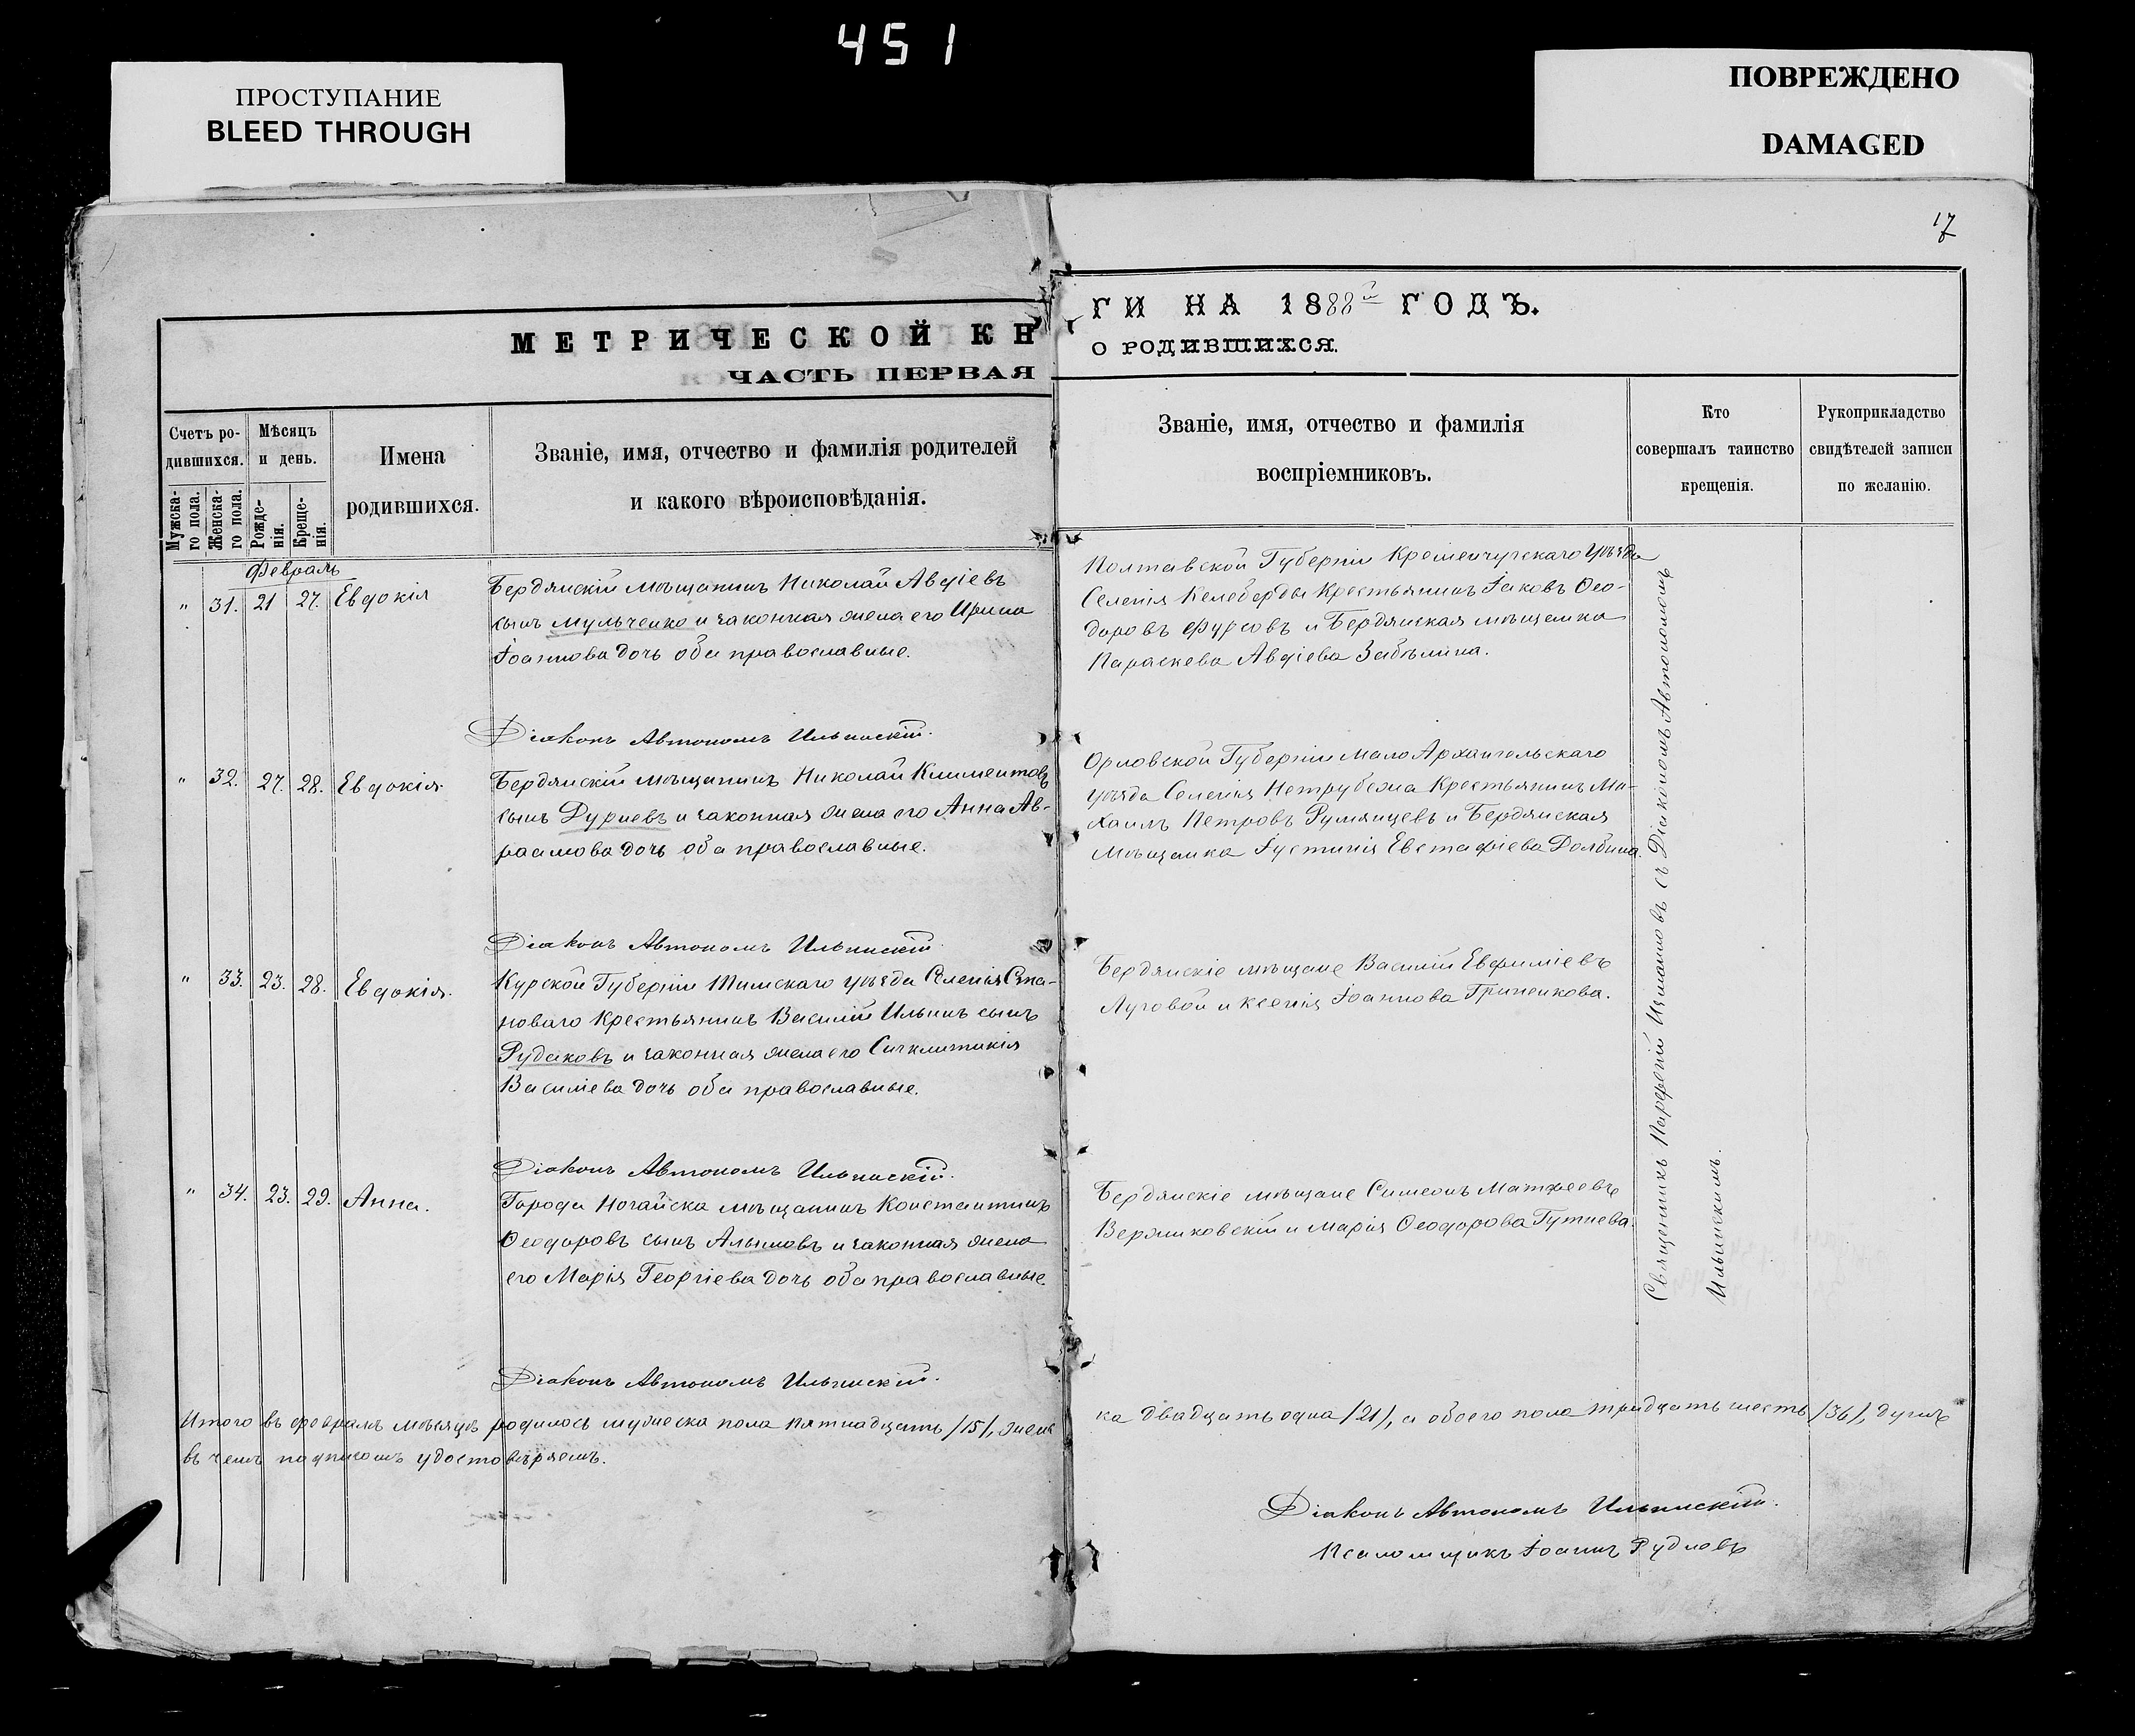 451
ПРОСТУПАНИЕ
BLEED THROUGH
ПОВРЕЖДЕНО
DAMAGED
17
МЕТРИЧЕСКОЙ КН
ЧАСТЬ ПЕРВАЯ
ГИ НА 1888й ГОДЪ.
О РОДИВШИХСЯ.
Счетъ ро-
дившихся.
Мужска-
го пола.
Женска-
го пола.
Мѣсяцъ
и день.
Рожде-
нія.
Креще-
нія.
Имена
родившихся.
Званіе, имя, отчество и фамилія родителей
и какого вѣроисповѣданія.
Званіе, имя, отчество и фамилія
воспріемниковъ.
Кто
совершалъ таинство
крещенія.
Рукоприкладство
свидѣтелей записи
по желанію.
Февраль
" 31. 21 27. Евдокія
Бердянскій мѣщанинъ Николай Авдіевъ
сынъ Мульченко и законная жена его Ирина
Іоаннова дочь оба православные.
Полтавской Губерніи Кременчугскаго Уѣзда
Селенія Келеберды Крестьянинъ Іаковъ Ѳео-
доровъ Фурсовъ и Бердянская мѣщанка
Параскева Авдіева Забѣлина.
Діаконъ Автономъ Ильинскій.
" 32. 27. 28. Евдокія.
Бердянскій мѣщанинъ Николай Климентовъ
сынъ Дурневъ и законная жена его Анна Ав-
раамова дочь оба православные.
Орловской Губерніи Мало Архангельскаго
уѣзда Селенія Нетрубежа Крестьянинъ Ми-
хаилъ Петровъ Румянцевъ и Бердянская
Мѣщанка Іустинія Евстафіева Долбина.
Діаконъ Автономъ Ильинскій.
" 33. 23. 28. Евдокія.
Курской Губерніи Тимскаго уѣзда Селенія Ста-
новаго Крестьянинъ Василій Ильинъ сынъ
Рудаковъ и законная жена его Сигклитикія
Василіева дочь оба православные.
Бердянскіе мѣщане Василій Евфиміевъ
Луговой и Ксенія Іоаннова Гриненкова.
Діаконъ Автономъ Ильинскій.
" 34. 23. 29. Анна.
Города Ногайска мѣщанинъ Константинъ
Ѳеодоровъ сынъ Алымовъ и законная жена
его Марія Георгіева дочь оба православные.
Бердянскіе мѣщане Симеонъ Матфеевъ
Вержиковскій и Марія Ѳеодорова Гутнева.
Священникъ Парфеній Цимановъ съ Діакономъ Автономомъ
Ильинскимъ.
Діаконъ Автономъ Ильинскій.
Итого въ февралѣ мѣсяцѣ родилось мужеска пола пятнадцать /15/, женс
ка двадцать одна /21/, а обоего пола тридцать шесть /36/, душъ
въ чемъ подписомъ удостовѣряемъ.
Діаконъ Автономъ Ильинскій.
Псаломщикъ Іоаннъ Рудновъ